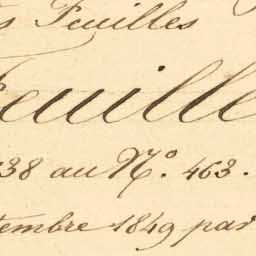 s Feuilles
Feuille
38 au N.º 463.
tembre 1849 par